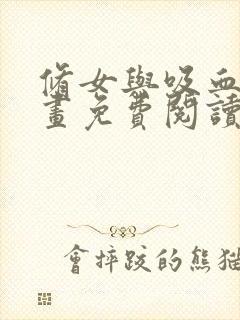 脩女與吸血
畫免費閱讀
會摔跤的熊貓